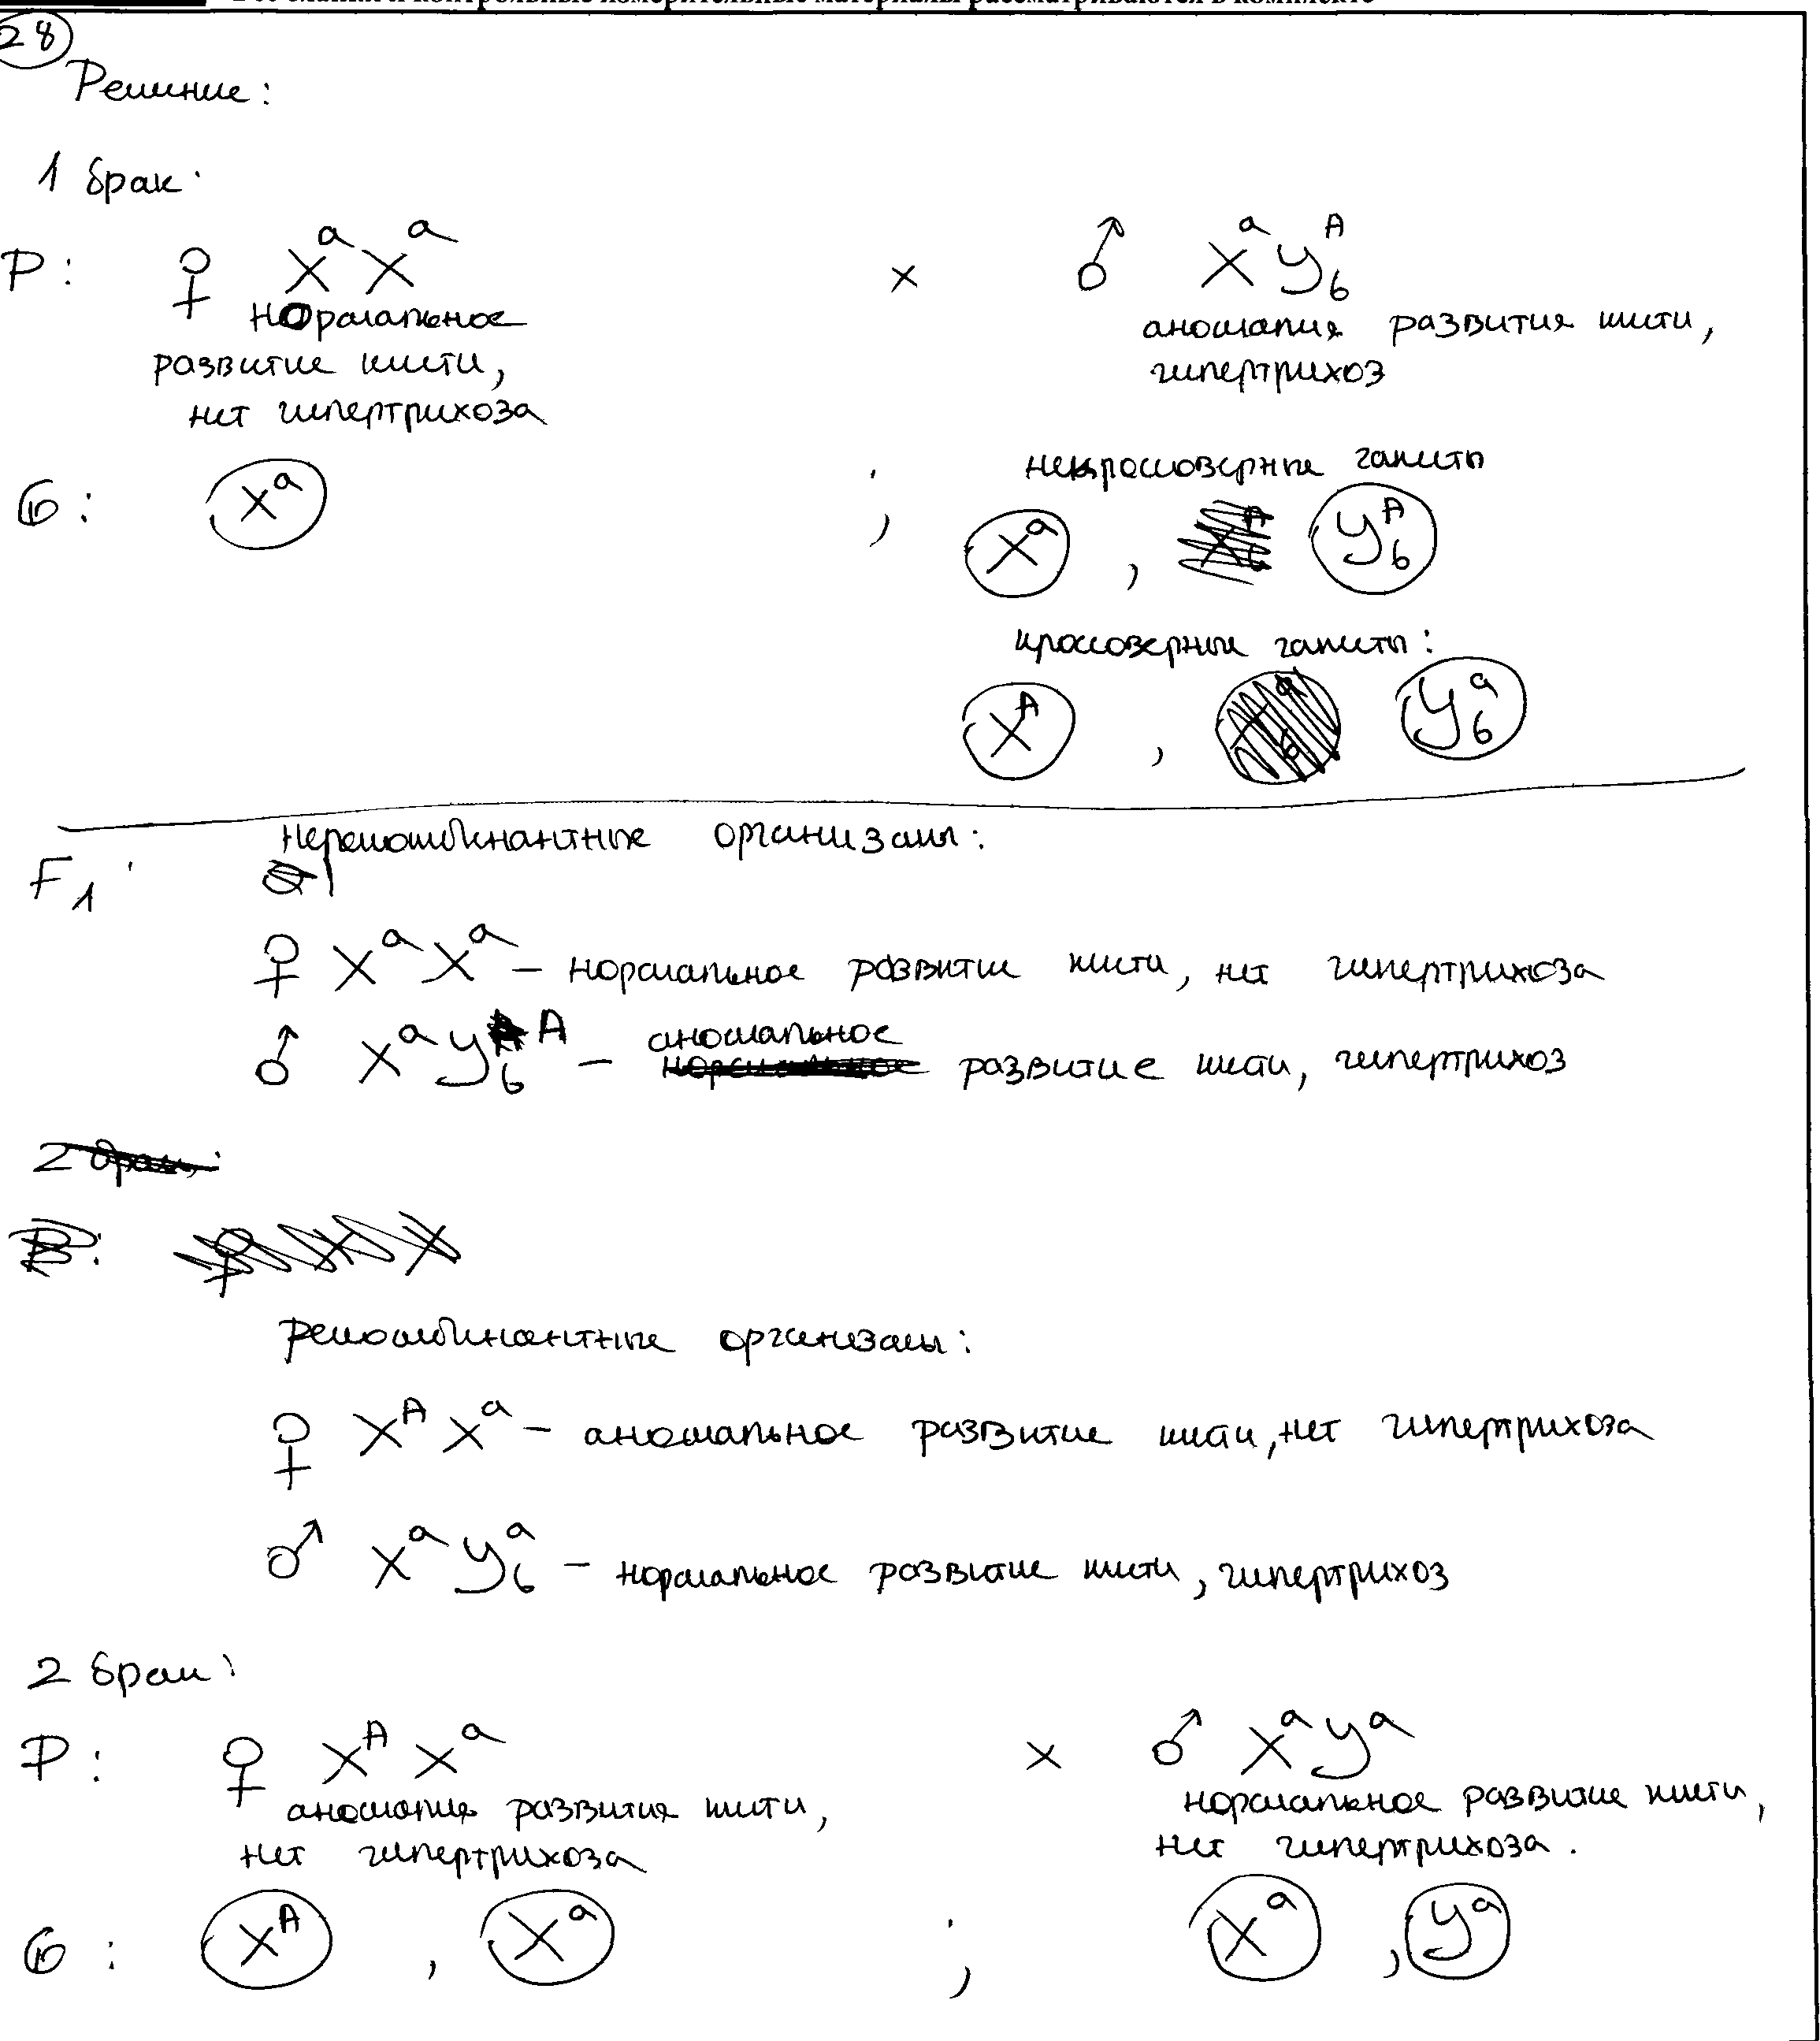 28
Решение:
1 брак:
P: ♀ XᵃXᵃ × ♂ XᵃYᴬб
нормальное
развитие кисти,
нет гипертрихоза
аномалия развития кисти,
гипертрихоз
G: Xᵃ ; некроссоверные гаметы
Xᵃ , Yᴬб
кроссоверные гаметы:
Xᴬ , Yᵃб
F₁: нерекомбинантные организмы:
♀ XᵃXᵃ – нормальное развитие кисти, нет гипертрихоза
♂ XᵃYᴬб – аномальное развитие кисти, гипертрихоз
2 брак:
P: ♀ X X
рекомбинантные организмы:
♀ XᴬXᵃ – аномальное развитие кисти, нет гипертрихоза
♂ XᵃYᵃб – нормальное развитие кисти, гипертрихоз
2 брак:
P: ♀ XᴬXᵃ × ♂ XᵃYᵃ
аномалия развития кисти,
нет гипертрихоза
нормальное развитие кисти,
нет гипертрихоза.
G: Xᴬ , Xᵃ ; Xᵃ , Yᵃ